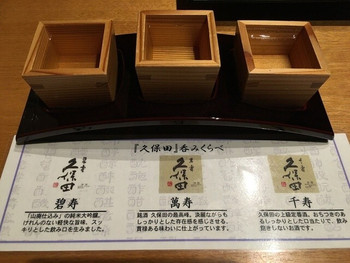 『久保田』呑みくらべ
久保田
碧寿
「山廃仕込み」の純米大吟醸。
げれんのない軽快な旨味、ス
ッキリとした飲み口を生みました。
久保田
萬寿
銘酒 久保田の最高峰。淡麗ながらも
しっかりとした存在感を感じさせる、
貫禄ある味わいに仕上がっています。
久保田
千寿
久保田の上級定番酒。おちつきのあ
るしっかりとした口当たりで、飲み
飽きしないお酒です。